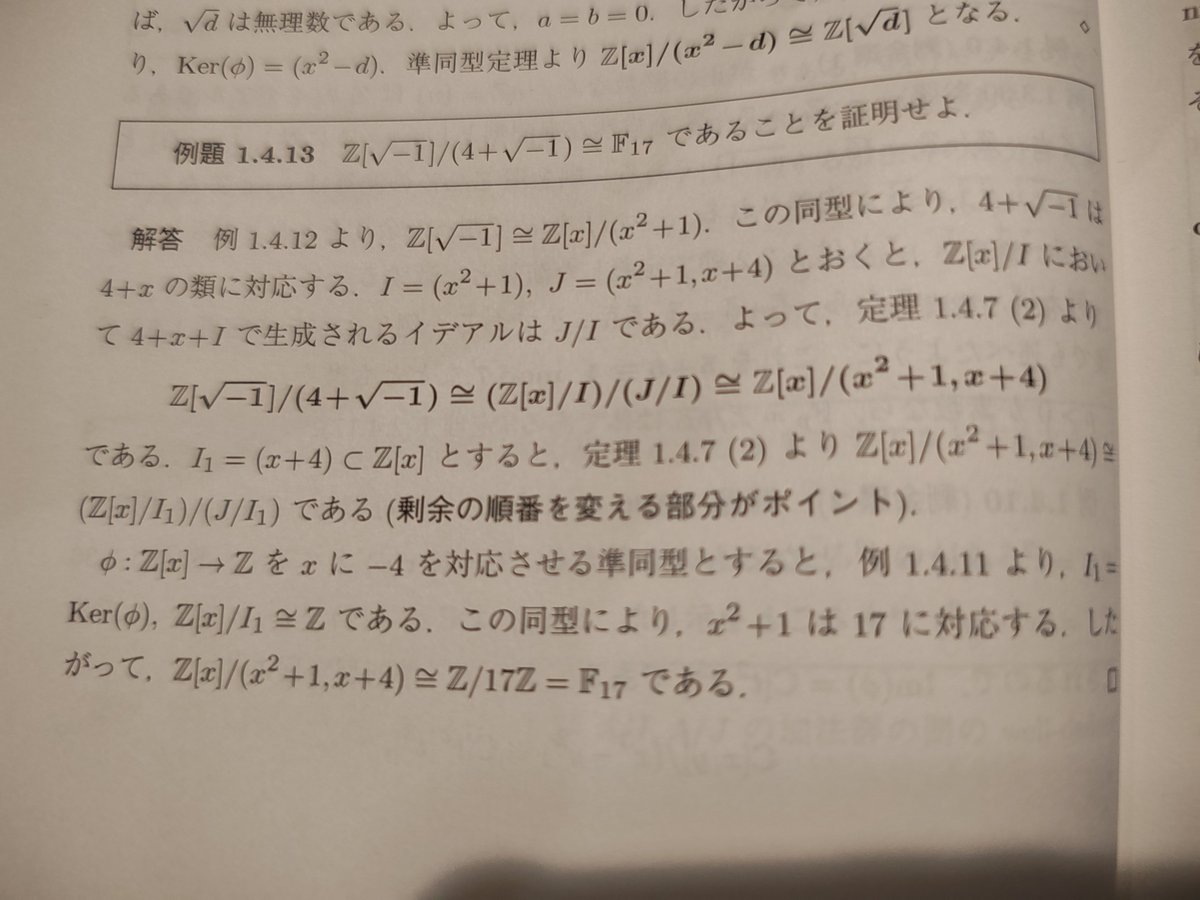 ば，√d は無理数である．よって，a = b = 0．したが
り，Ker(φ) = (x²−d)．準同型定理より ℤ[x]/(x²−d) ≅ ℤ[√d] となる．
例題 1.4.13 ℤ[√−1]/(4+√−1) ≅ 𝔽₁₇ であることを証明せよ．
解答 例 1.4.12 より，ℤ[√−1] ≅ ℤ[x]/(x²+1)．この同型により，4+√−1 は
4+x の類に対応する．I = (x²+1), J = (x²+1, x+4) とおくと，ℤ[x]/I におい
て 4+x+I で生成されるイデアルは J/I である．よって，定理 1.4.7 (2) より
ℤ[√−1]/(4+√−1) ≅ (ℤ[x]/I)/(J/I) ≅ ℤ[x]/(x²+1, x+4)
である．I₁ = (x+4) ⊂ ℤ[x] とすると，定理 1.4.7 (2) より ℤ[x]/(x²+1, x+4) ≅
(ℤ[x]/I₁)/(J/I₁) である (剰余の順番を変える部分がポイント)．
φ : ℤ[x] → ℤ を x に −4 を対応させる準同型とすると，例 1.4.11 より，I₁ =
Ker(φ), ℤ[x]/I₁ ≅ ℤ である．この同型により，x²+1 は 17 に対応する．した
がって，ℤ[x]/(x²+1, x+4) ≅ ℤ/17ℤ = 𝔽₁₇ である．